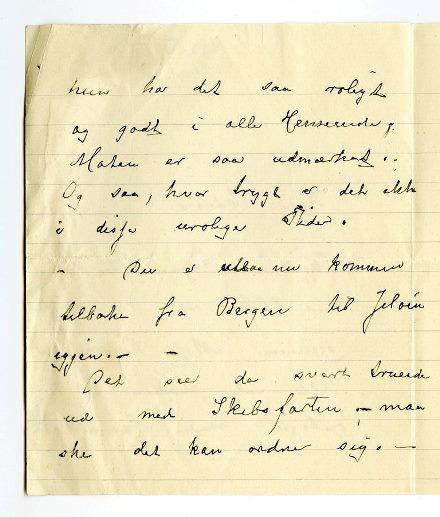 hun har det saa roligt
og godt i alle Henseender,
Maten er saa udmærket..
Og saa, hvor trygt er det ikke
i disse urolige Tider.
- Du er nu kommen
tilbake fra Bergen til Jeløin
igjen. - -
Det seer da svært truende
ud med Skibsfarten, - maa
ske det kan ordner sig. -